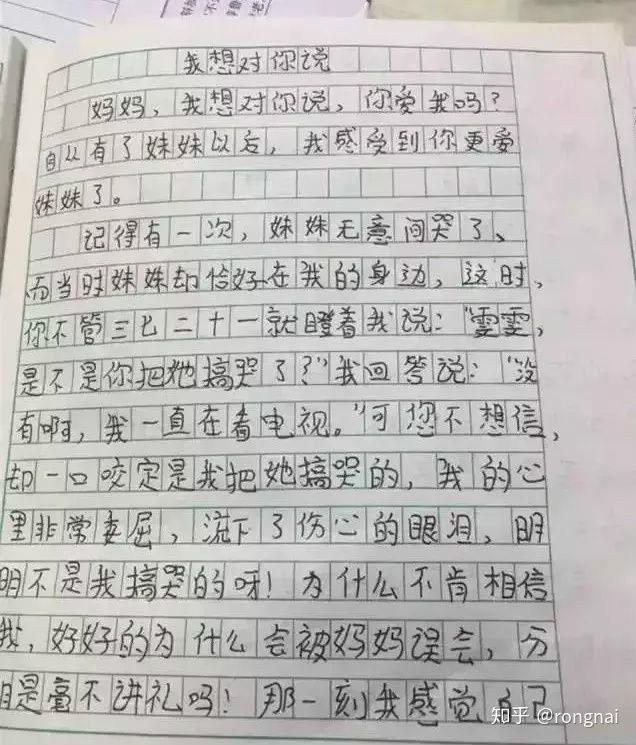 我想对你说
妈妈，我想对你说，你爱我吗？
自从有了妹妹以后，我感受到你更爱
妹妹了。
记得有一次，妹妹无意间哭了、
而当时妹妹却恰好在我的身边，这时，
你不管三七二十一就瞪着我说：“雯雯，
是不是你把她搞哭了？”我回答说：“没
有啊，我一直在看电视。”可您不想信，
却一口咬定是我把她搞哭的，我的心
里非常委屈，流下了伤心的眼泪，明
明不是我搞哭的呀！为什么不肯相信
我，好好的为什么会被妈妈误会，分
明是毫不讲礼吗！那一刻我感觉
知乎 @rongnai